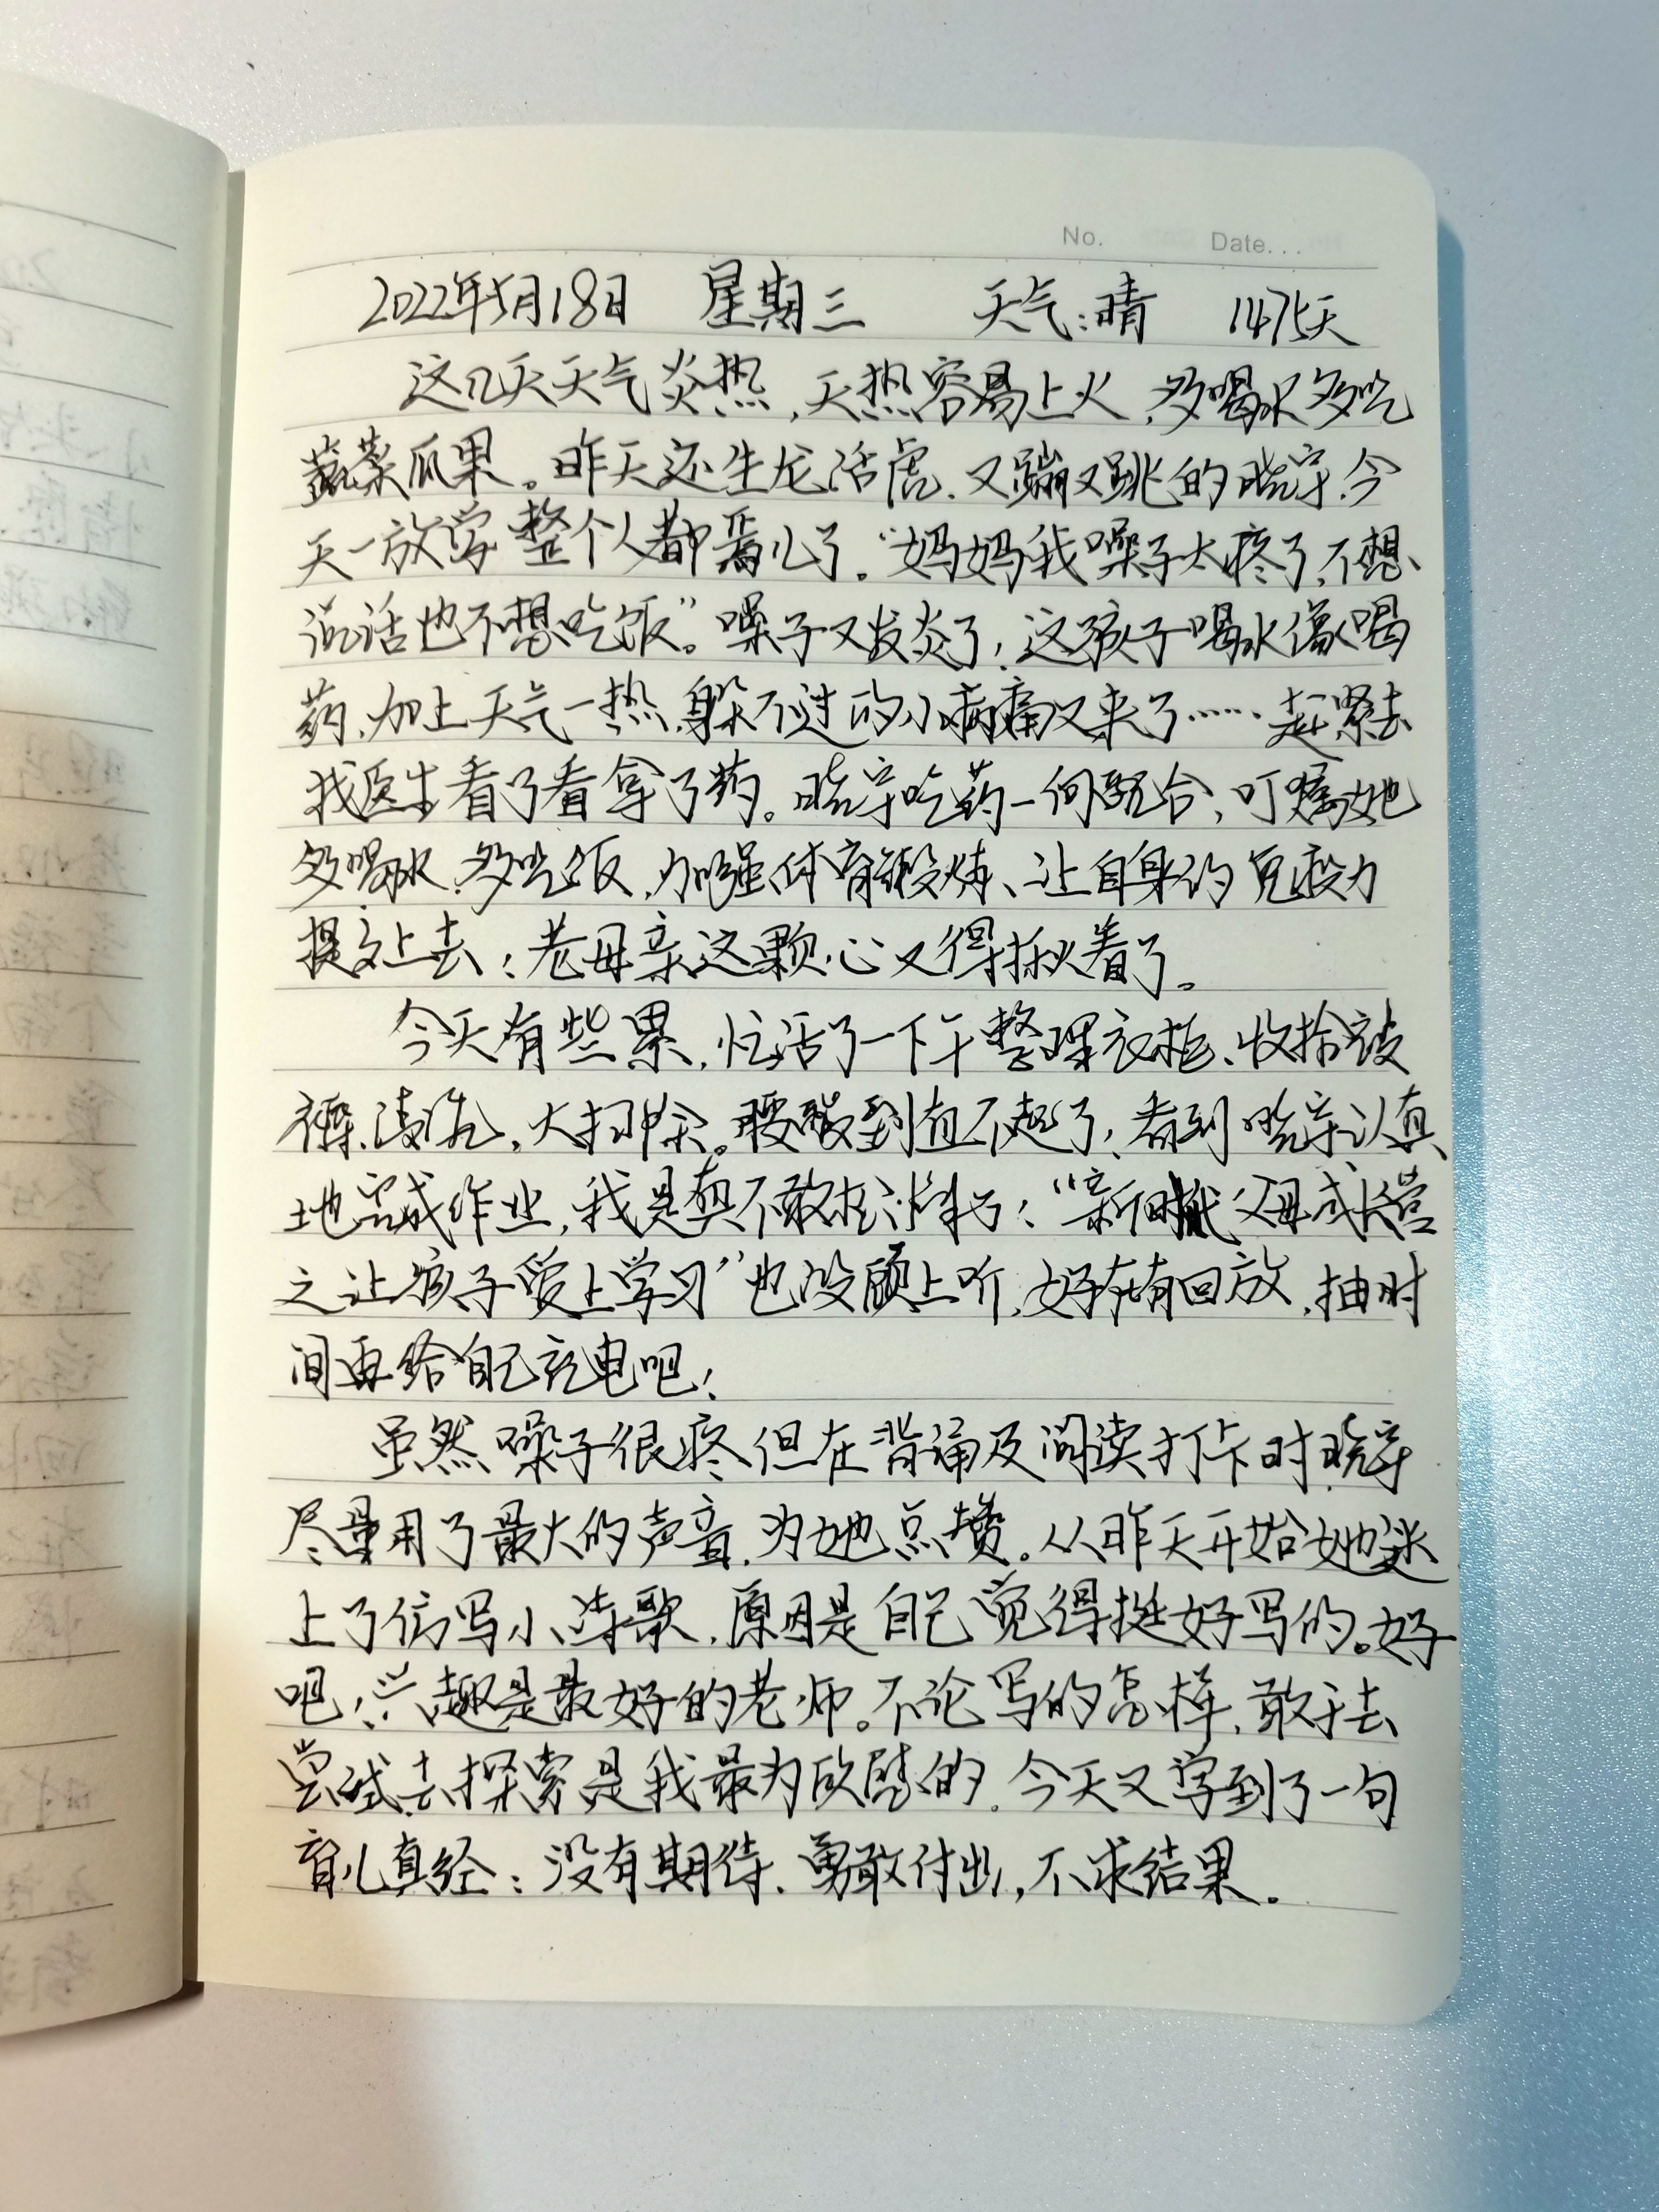 No. Date...
2022年5月18日 星期三 天气:晴 1475天
这几天天气炎热,天热容易上火,多喝水多吃
蔬菜瓜果。昨天还生龙活虎、又蹦又跳的晓宇,今
天一放学整个人都蔫儿了。"妈妈我嗓子太疼了,不想
说话也不想吃饭"。嗓子又发炎了!这孩子喝水像喝
药,加上天气一热,躲不过的小病痛又来了……赶紧去
找医生看了看拿了药。晓宇吃药一向配合,叮嘱她
多喝水、多吃饭,加强体育锻炼、让自身的免疫力
提高上去!老母亲这颗心又得揪着了。
今天有些累,忙活了一下午整理衣柜、收拾被
褥、清洗,大扫除。腰酸到直不起了,看到晓宇认真
地完成作业,我是真不敢打扰了!"新时代父母成长营
之让孩子爱上学习"也没顾上听,好在有回放,抽时
间再给自己充电吧!
虽然嗓子很疼但在背诵及阅读打卡时晓宇
尽量用了最大的声音,为她点赞。从昨天开始她迷
上了仿写小诗歌,原因是自己觉得挺好写的。好
吧!兴趣是最好的老师。不论写的怎样,敢于去
尝试去探索是我最为欣慰的。今天又学到了一句
育儿真经:没有期待、勇敢付出,不求结果。